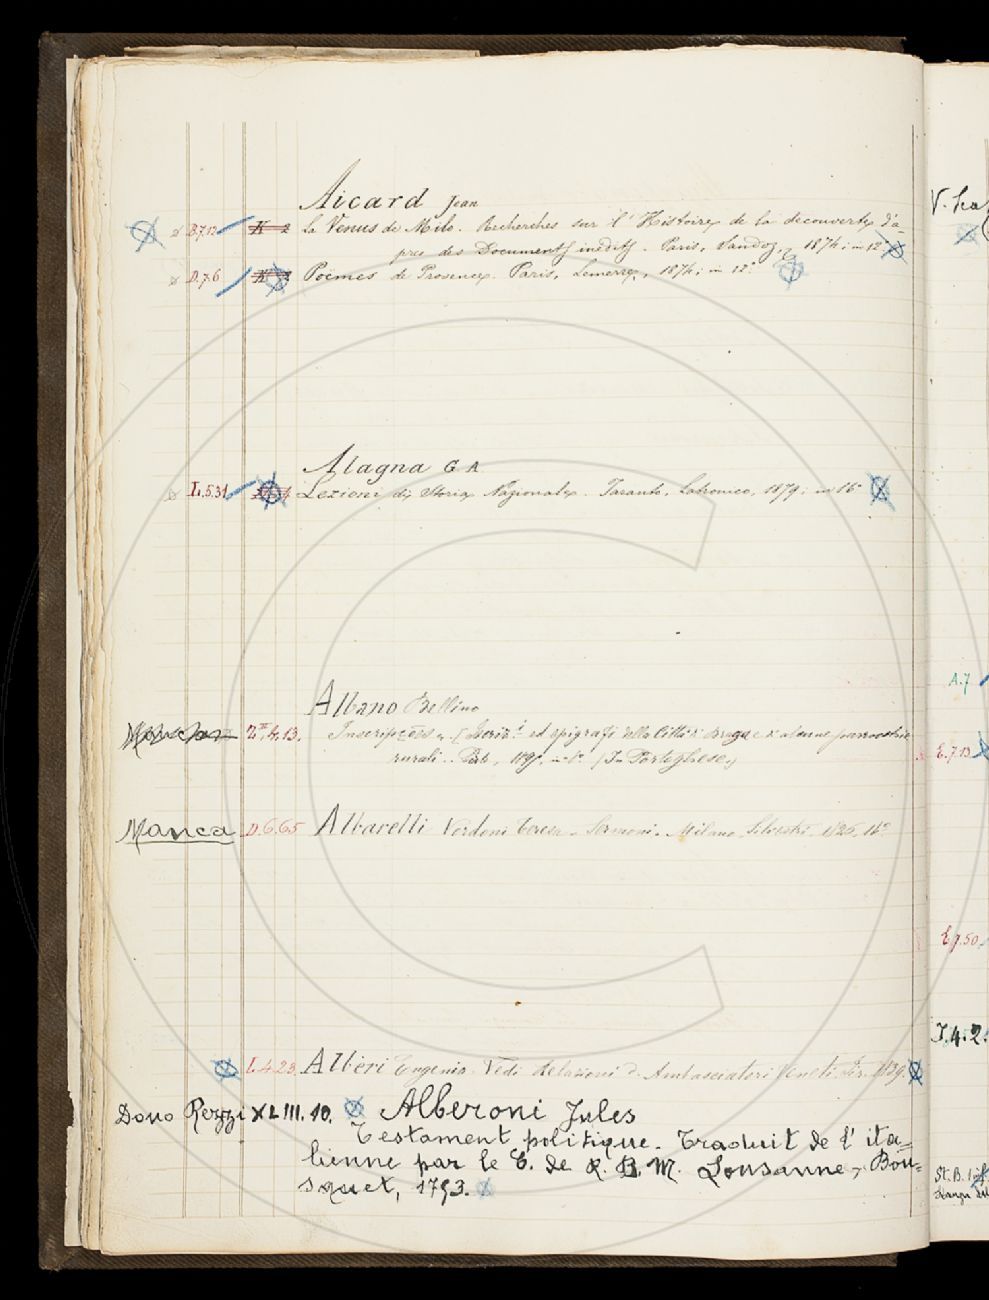 Aicard Jean
B.7.12 K 2 La Venus de Milo. Recherches sur l'Histoire de la decouverte d'a-
pres des Documents inedits. Paris, Sandoz, 1874; in 12°
D.7.6 Poèmes de Provence. Paris, Lemerre, 1874; in 12°
Alagna G A
L.5.31 Lezioni di Storia Nazionale. Taranto, Latronico, 1879; in 16°
Albano Bellino
4.13. ed epigrafi della Città di Braga e d'alcune parrocchie
rurali. (In Portoghese)
Manca D.6.65 Albarelli Vordoni Teresa. Sermoni. Milano, Silvestri, 1826, 16°
I.4.23. Albèri Eugenio. Vedi Relazioni d. Ambasciatori Veneti. 1839.
Dono Rezzi XLIII.10. Alberoni Jules
Testament politique. Traduit de l'ita-
lienne par le C. de R. B. M. Lousanne, Bou-
squet, 1753.
A.7
E.7.13
E.7.50
I.4.2.
St. B.